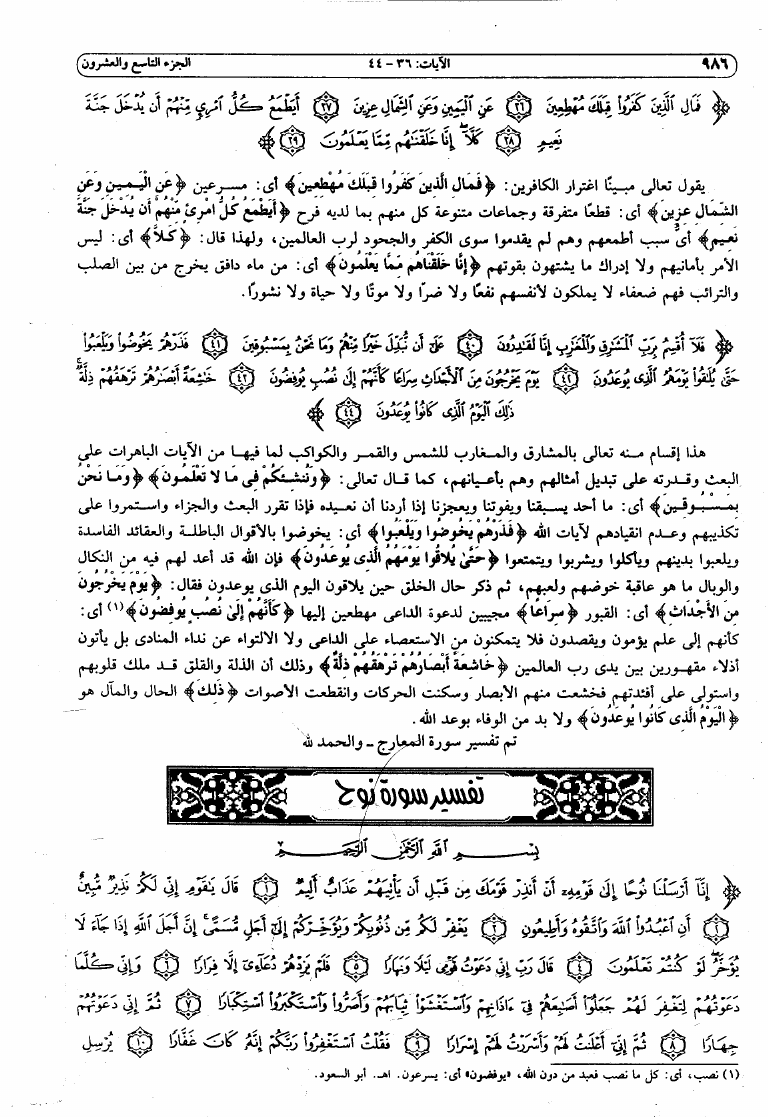 ٩٨٦ الآيات: ٣٦ - ٤٤ الجزء التاسع والعشرون
﴿ فَمَالِ الَّذِينَ كَفَرُوا قِبَلَكَ مُهْطِعِينَ ٣٦ عَنِ الْيَمِينِ وَعَنِ الشِّمَالِ عِزِينَ ٣٧ أَيَطْمَعُ كُلُّ امْرِئٍ مِّنْهُمْ أَن يُدْخَلَ جَنَّةَ
نَعِيمٍ ٣٨ كَلَّا إِنَّا خَلَقْنَاهُم مِّمَّا يَعْلَمُونَ ٣٩ ﴾
يقول تعالى مبينًا اغترار الكافرين: ﴿فَمَالِ الَّذِينَ كَفَرُوا قِبَلَكَ مُهْطِعِينَ﴾ أى: مسرعين ﴿عَنِ الْيَمِينِ وَعَنِ
الشِّمَالِ عِزِينَ﴾ أى: قطعًا متفرقة وجماعات متنوعة كل منهم بما لديه فرح ﴿أَيَطْمَعُ كُلُّ امْرِئٍ مِّنْهُمْ أَن يُدْخَلَ جَنَّةَ
نَعِيمٍ﴾ أى سبب أطمعهم وهم لم يقدموا سوى الكفر والجحود لرب العالمين، ولهذا قال: ﴿كَلاَّ﴾ أى: ليس
الأمر بأمانيهم ولا إدراك ما يشتهون بقوتهم ﴿إِنَّا خَلَقْنَاهُم مِّمَّا يَعْلَمُونَ﴾ أى: من ماء دافق يخرج من بين الصلب
والترائب فهم ضعفاء لا يملكون لأنفسهم نفعًا ولا ضرًا ولا موتًا ولا حياة ولا نشورًا.
﴿ فَلَا أُقْسِمُ بِرَبِّ الْمَشَارِقِ وَالْمَغَارِبِ إِنَّا لَقَادِرُونَ ٤٠ عَلَىٰ أَن نُّبَدِّلَ خَيْرًا مِّنْهُمْ وَمَا نَحْنُ بِمَسْبُوقِينَ ٤١ فَذَرْهُمْ يَخُوضُوا وَيَلْعَبُوا
حَتَّىٰ يُلَاقُوا يَوْمَهُمُ الَّذِي يُوعَدُونَ ٤٢ يَوْمَ يَخْرُجُونَ مِنَ الْأَجْدَاثِ سِرَاعًا كَأَنَّهُمْ إِلَىٰ نُصُبٍ يُوفِضُونَ ٤٣ خَاشِعَةً أَبْصَارُهُمْ تَرْهَقُهُمْ ذِلَّةٌ
ذَٰلِكَ الْيَوْمُ الَّذِي كَانُوا يُوعَدُونَ ٤٤ ﴾
هذا إقسام منه تعالى بالمشارق والمغارب للشمس والقمر والكواكب لما فيها من الآيات الباهرات على
البعث وقدرته على تبديل أمثالهم وهم بأعيانهم، كما قال تعالى: ﴿وَنُنشِئَكُمْ فِى مَا لا تَعْلَمُونَ﴾ ﴿وَمَا نَحْنُ
بِمَسْبُوقِينَ﴾ أى: ما أحد يسبقنا ويفوتنا ويعجزنا إذا أردنا أن نعيده فإذا تقرر البعث والجزاء واستمروا على
تكذيبهم وعدم انقيادهم لآيات الله ﴿فَذَرْهُمْ يَخُوضُوا وَيَلْعَبُوا﴾ أى: يخوضوا بالأقوال الباطلة والعقائد الفاسدة
ويلعبوا بدينهم ويأكلوا ويشربوا ويتمتعوا ﴿حَتَّىٰ يُلاقُوا يَوْمَهُمُ الَّذِى يُوعَدُونَ﴾ فإن الله قد أعد لهم فيه من النكال
والوبال ما هو عاقبة خوضهم ولعبهم، ثم ذكر حال الخلق حين يلاقون اليوم الذى يوعدون فقال: ﴿يَوْمَ يَخْرُجُونَ
مِنَ الأَجْدَاثِ﴾ أى: القبور ﴿سِرَاعًا﴾ مجيبين لدعوة الداعى مهطعين إليها ﴿كَأَنَّهُمْ إِلَىٰ نُصُبٍ يُوفِضُونَ﴾(١) أى:
كأنهم إلى علم يؤمون ويقصدون فلا يتمكنون من الاستعصاء على الداعى ولا الالتواء عن نداء المنادى بل يأتون
أذلاء مقهورين بين يدى رب العالمين ﴿خَاشِعَةً أَبْصَارُهُمْ تَرْهَقُهُمْ ذِلَّةٌ﴾ وذلك أن الذلة والقلق قد ملك قلوبهم
واستولى على أفئدتهم فخشعت منهم الأبصار وسكنت الحركات وانقطعت الأصوات ﴿ذَلِكَ﴾ الحال والمآل هو
﴿الْيَوْمُ الَّذِى كَانُوا يُوعَدُونَ﴾ ولا بد من الوفاء بوعد الله.
تم تفسير سورة المعارج ـ والحمد لله
تفسير سورة نوح
بِسْمِ اللَّهِ الرَّحْمَٰنِ الرَّحِيمِ
﴿ إِنَّا أَرْسَلْنَا نُوحًا إِلَىٰ قَوْمِهِ أَنْ أَنذِرْ قَوْمَكَ مِن قَبْلِ أَن يَأْتِيَهُمْ عَذَابٌ أَلِيمٌ ١ قَالَ يَا قَوْمِ إِنِّي لَكُمْ نَذِيرٌ مُّبِينٌ
٢ أَنِ اعْبُدُوا اللَّهَ وَاتَّقُوهُ وَأَطِيعُونِ ٣ يَغْفِرْ لَكُم مِّن ذُنُوبِكُمْ وَيُؤَخِّرْكُمْ إِلَىٰ أَجَلٍ مُّسَمًّى إِنَّ أَجَلَ اللَّهِ إِذَا جَاءَ لَا
يُؤَخَّرُ لَوْ كُنتُمْ تَعْلَمُونَ ٤ قَالَ رَبِّ إِنِّي دَعَوْتُ قَوْمِي لَيْلًا وَنَهَارًا ٥ فَلَمْ يَزِدْهُمْ دُعَائِي إِلَّا فِرَارًا ٦ وَإِنِّي كُلَّمَا
دَعَوْتُهُمْ لِتَغْفِرَ لَهُمْ جَعَلُوا أَصَابِعَهُمْ فِي آذَانِهِمْ وَاسْتَغْشَوْا ثِيَابَهُمْ وَأَصَرُّوا وَاسْتَكْبَرُوا اسْتِكْبَارًا ٧ ثُمَّ إِنِّي دَعَوْتُهُمْ
جِهَارًا ٨ ثُمَّ إِنِّي أَعْلَنتُ لَهُمْ وَأَسْرَرْتُ لَهُمْ إِسْرَارًا ٩ فَقُلْتُ اسْتَغْفِرُوا رَبَّكُمْ إِنَّهُ كَانَ غَفَّارًا ١٠ يُرْسِلِ
(١) نصب، أى: كل ما نصب فعبد من دون الله، «يوفضون» أى: يسرعون. اهـ. أبو السعود.